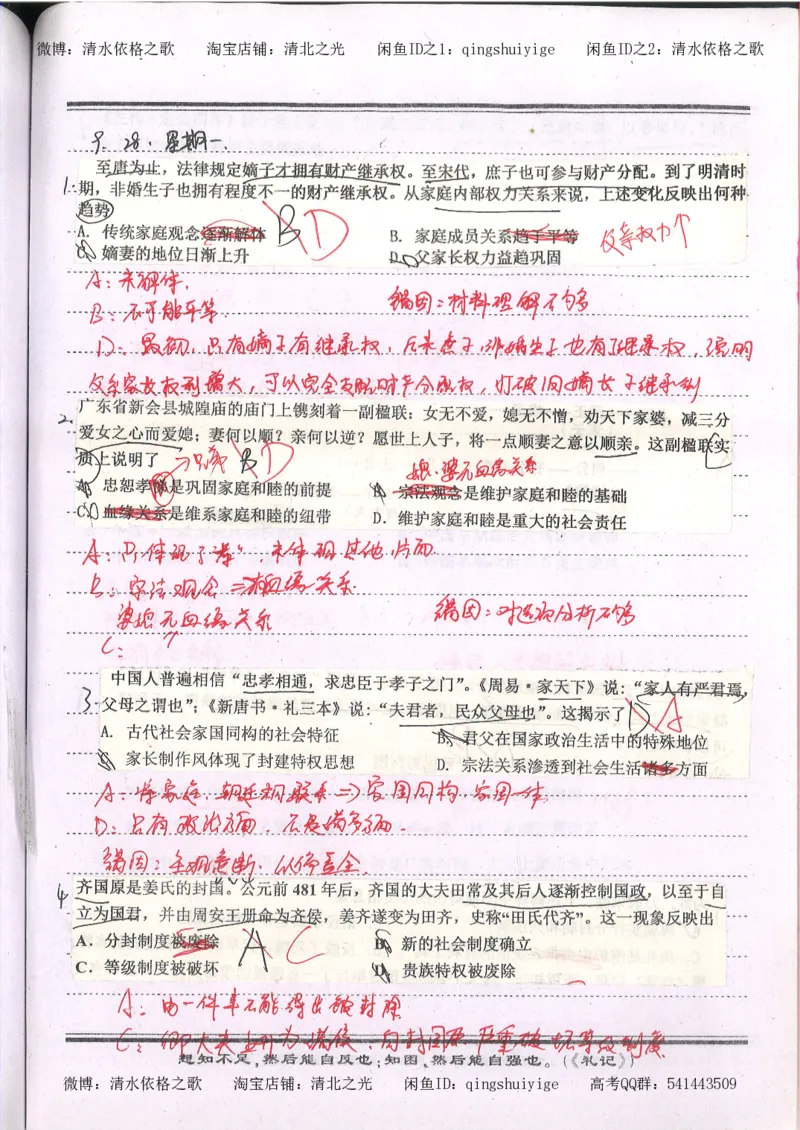 微博：清水依格之歌 淘宝店铺：清北之光 闲鱼ID之1：qingshuiyige 闲鱼ID之2：清水依格之歌
9.28. 星期
1. 至唐为止，法律规定嫡子才拥有财产继承权。至宋代，庶子也可参与财产分配。到了明清时
期，非婚生子也拥有程度不一的财产继承权。从家庭内部权力关系来说，上述变化反映出何种
趋势
A．传统家庭观念逐渐解体 B D B．家庭成员关系趋于平等 父亲权力↑
C．嫡妻的地位日渐上升 D．父家长权力益趋巩固
A：未解体．
错因：材料理解不够
B：不可能平等
D：最初，只有嫡子有继承权，后来庶子、非婚生子也有了继承权，说明
父亲家长权利增大，可以完全支配财产分配权，打破旧嫡长子继承制
2. 广东省新会县城隍庙的庙门上镌刻着一副楹联：女无不爱，媳无不憎，劝天下家婆，减三分
爱女之心而爱媳；妻何以顺？亲何以逆？愿世上人子，将一点顺妻之意以顺亲。这副楹联实
质上说明了 B D 媳、婆无血缘关系
A．忠恕孝悌是巩固家庭和睦的前提 B．宗法观念是维护家庭和睦的基础
C．血缘关系是维系家庭和睦的纽带 D．维护家庭和睦是重大的社会责任
A：只体现了"孝"，未体现其他，片面．
B：宗法观念⇒有血缘关系．
婆媳无血缘关系
错因：对选项分析不够
C： ↑
3. 中国人普遍相信“忠孝相通，求忠臣于孝子之门”。《周易·家天下》说：“家人有严君焉，
父母之谓也”；《新唐书·礼三本》说：“夫君者，民众父母也”。这揭示了 D A
A．古代社会家国同构的社会特征 B．君父在国家政治生活中的特殊地位
C．家长制作风体现了封建特权思想 D．宗法关系渗透到社会生活诸多方面
A：将家庭、朝廷相联系⇒家国同构，家国一体
D：只有政治方面，不是诸多方面．
错因：主观意断．
4. 齐国原是姜氏的封国。公元前 481 年后，齐国的大夫田常及其后人逐渐控制国政，以至于自
立为国君，并由周安王册命为齐侯，姜齐遂变为田齐，史称“田氏代齐”。这一现象反映出
A．分封制度被废除 A C B．新的社会制度确立
C．等级制度被破坏 D．贵族特权被废除
A：由一件事不能得出被封除
C：卿大夫上升为诸侯，向封国君严重破坏等级制度
想知不足，然后能自反也；知困，然后能自强也。（《礼记》）
微博：清水依格之歌 淘宝店铺：清北之光 闲鱼ID：qingshuiyige 高考QQ群：541443509